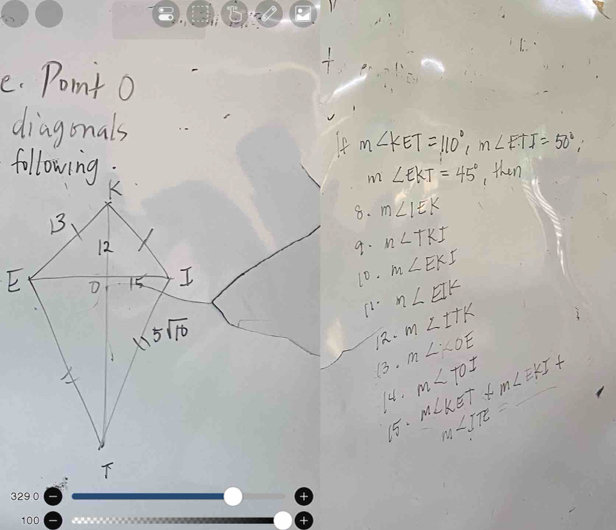 e. Point O
diagonals
following.
K
13
12
E
O
15
I
5√10
T
If m∠KET = 110°, m∠ETI = 50°,
m∠EKT = 45°, then
8. m∠IEK
9. m∠TKI
10. m∠EKI
11. m∠EIK
12. m∠ITK
13. m∠KOE
14. m∠TOI
15. m∠KET + m∠EKI +
m∠ITE =
329.0
100